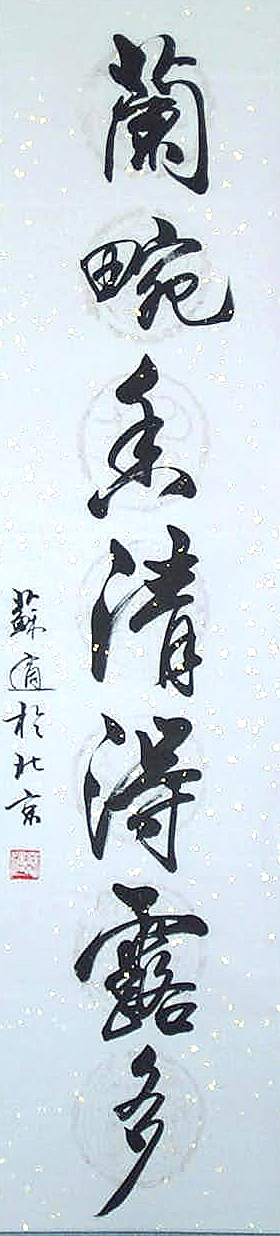 蘭畹香清得露多
蘇適於北京